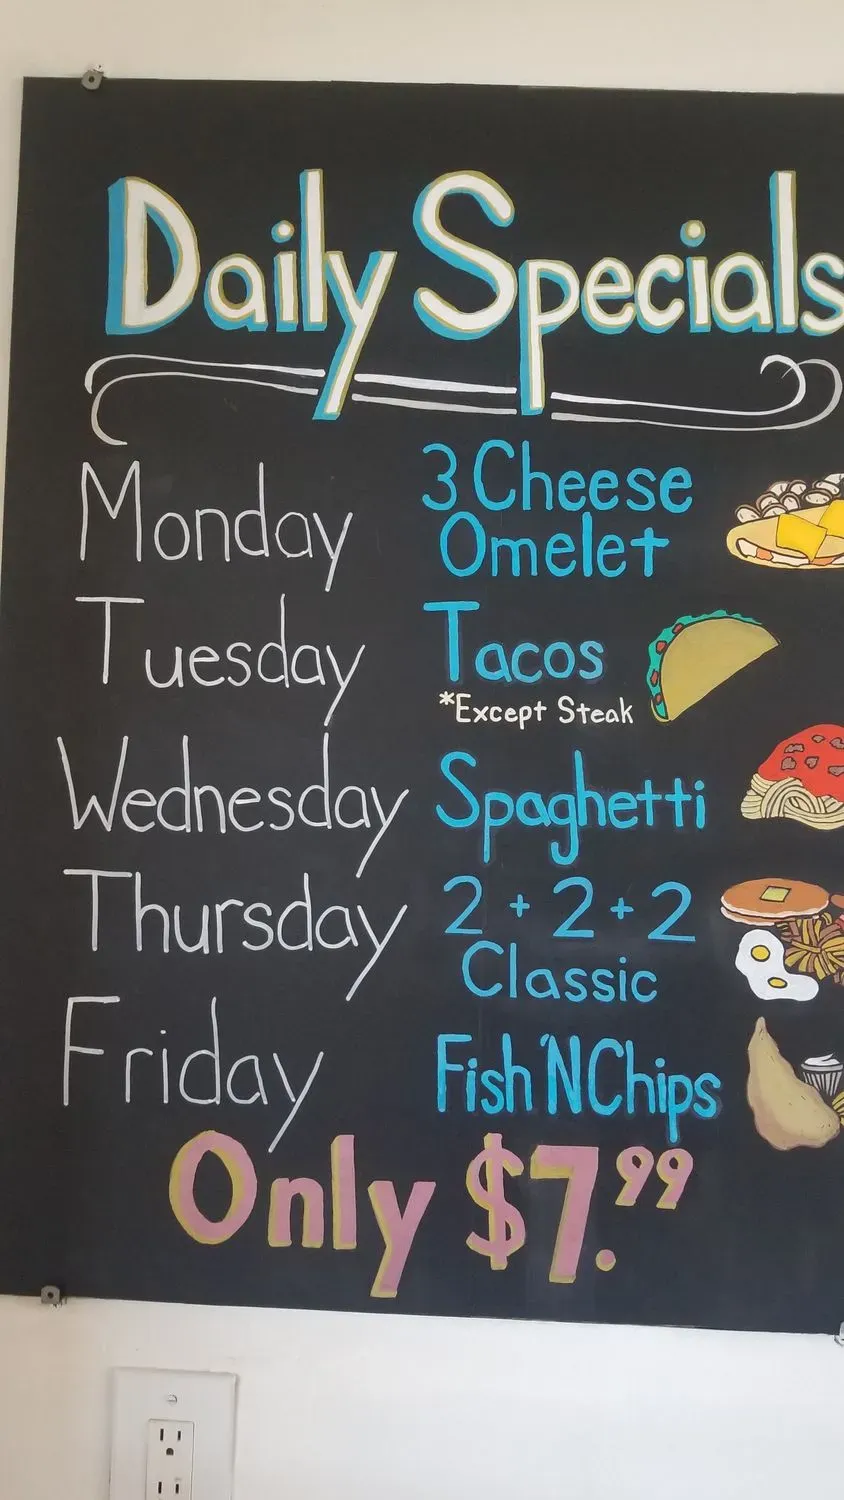 Daily Specials
Monday 3 Cheese
Omelet
Tuesday Tacos
*Except Steak
Wednesday Spaghetti
Thursday 2 + 2 + 2
Classic
Friday Fish 'N Chips
Only $7.99